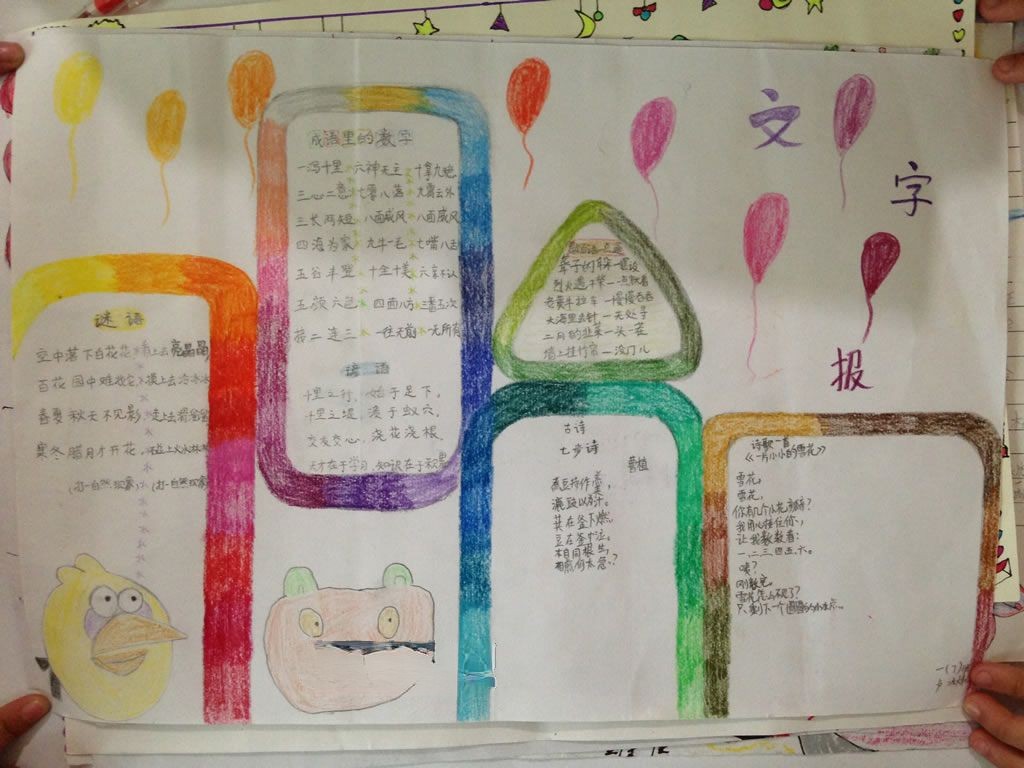 文
字
报
成语里的数字
一泻十里 六神无主 十拿九稳
三心二意 七零八落 九霄云外
三长两短 八面威风 八面威风
四海为家 九牛一毛 七嘴八舌
五谷丰登 十全十美 六亲不认
五颜六色 四面八方 三番五次
接二连三 一往无前 一无所有
谚语
千里之行，始于足下。
千里之堤，溃于蚁穴。
交友交心，浇花浇根。
天才在于学习，知识在于积累
谜语
空中落下白花花 看上去亮晶晶
百花园中难找它 摸上去冷冰冰
春夏秋天不见影 走上去滑
寒冬腊月才开花
(打一自然现象) (打一自然现象)
烈火遇干柴 一点就着
老黄牛拉车 一慢慢吞吞
大海里丢针 一无处寻
二月的韭菜 一头一茬
墙上挂竹帘 一没门儿
古诗
七步诗
曹植
煮豆持作羹，
漉豉以为汁。
萁在釜下燃，
豆在釜中泣。
本自同根生，
相煎何太急？
诗歌一首
《一片小小的雪花》
雪花，
雪花，
你有几个小花瓣？
我用心接住你，
让我数数看：
一、二、三、四、五、六。
咦？
刚数完，
雪花怎么不见了？
只剩下一个圆圆的小水点。